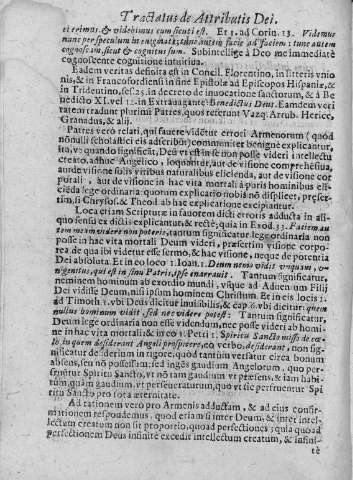 Tractatus de Attributis Dei.
ei erimus & videbimus eum sicuti est. Et 1. ad Corin. 13. Videmus
nunc per speculum in enigmate; tunc autem facie ad faciem: tunc autem
cognoscam, sicut & cognitus sum. Subintellige à Deo me immediatè
cognoscente cognitione intuitiua.
Eadem veritas definita est in Concil. Florentino, in litteris vnio
nis, & in Francofordiensi in fine Epistolæ ad Episcopos Hispaniæ, &
in Tridentino, sess. 25. in decreto de inuocatione sanctorum, & à Be
nedicto XI. vel 12. in Extrauagante Benedictus Deus. Eamdem veri
tatem tradunt plurimi Patres, quos referunt Vazq. Arrub. Herice,
Granadus, & alij.
Patres verò relati, qui fauere videtur errori Armenorum (quod
nonulli scholastici eis adscribũt) communiter benignè explicantur,
ita, vt quando significãt, Deũ ex se nõ posse videri intellectu
creato, adhuc Angelico, loquantur, aut de visione comprehẽsiua,
aut de visione solis viribus naturalibus elicienda, aut de visione cor
porali, aut de visione in hac vita mortali à puris hominibus eli-
cieda lege ordinaria: quorum explicatio nobis nõ displicet, præser-
tim, si Chrysost. & Theod. ab hac explicatione excipiantur.
Loca etiam Scripturæ in fauorem dicti erroris adducta in ali-
quo sensu ex dictis explicantur, & rectè, quia in Exod. 33. Faciem au
tem meam videre non poteris, tantum significatur lege ordinaria non
posse in hac vita mortali Deum videri, præsertim visione corpo-
rea de qua ibi videtur esse sermo, & hac visione, neque de potentia
Dei absoluta. Et in eo loco 1. Ioan. 1. Deum nemo vidit vnquam, v-
nigenitus, qui est in sinu Patris, ipse enarrauit. Tantum significatur,
neminem hominum ab exordio mundi, vsque ad Aduentum Filij
Dei vidisse Deum, nisi ipsum hominem Christum. Et in eis locis 1.
ad Timoth. 1. vbi Deus dicitur inuisibilis, & cap. 6. vbi dicitur: quem
nullus hominum vidit, sed nec videre potest: Tantum significatur,
Deum lege ordinaria non esse videndum, nec posse videri ab homi-
ne in hac vita mortali: & in eo 1. Petri 1. Spiritu Sancto misso de cæ-
lo in quem desiderant Angeli prospicere, eo verbo, desiderant, non sig-
nificatur desiderium in rigore, quod tantùm versatur circa bonum
absens, seu nõ possessum; sed ingẽs gaudium Angelorum, quo per-
fruuntur Spiritu Sancto, vt nõ tam gaudium vt præsens, & iam habi-
tum, quàm gaudium vt perseueraturum, quo vt sic perfruuntur Spi
ritu Sancto pro tota æternitate.
Ad rationem verò pro Armenis adductam, & ad eius confir-
mationem respondemus, quod etiamsi inter Deum, & inter intel-
lectum creatum non sit proportio, quoad perfectiones; quia quoad
perfectionem Deus infinitè excedit intellectum creatum, & infini-
tè